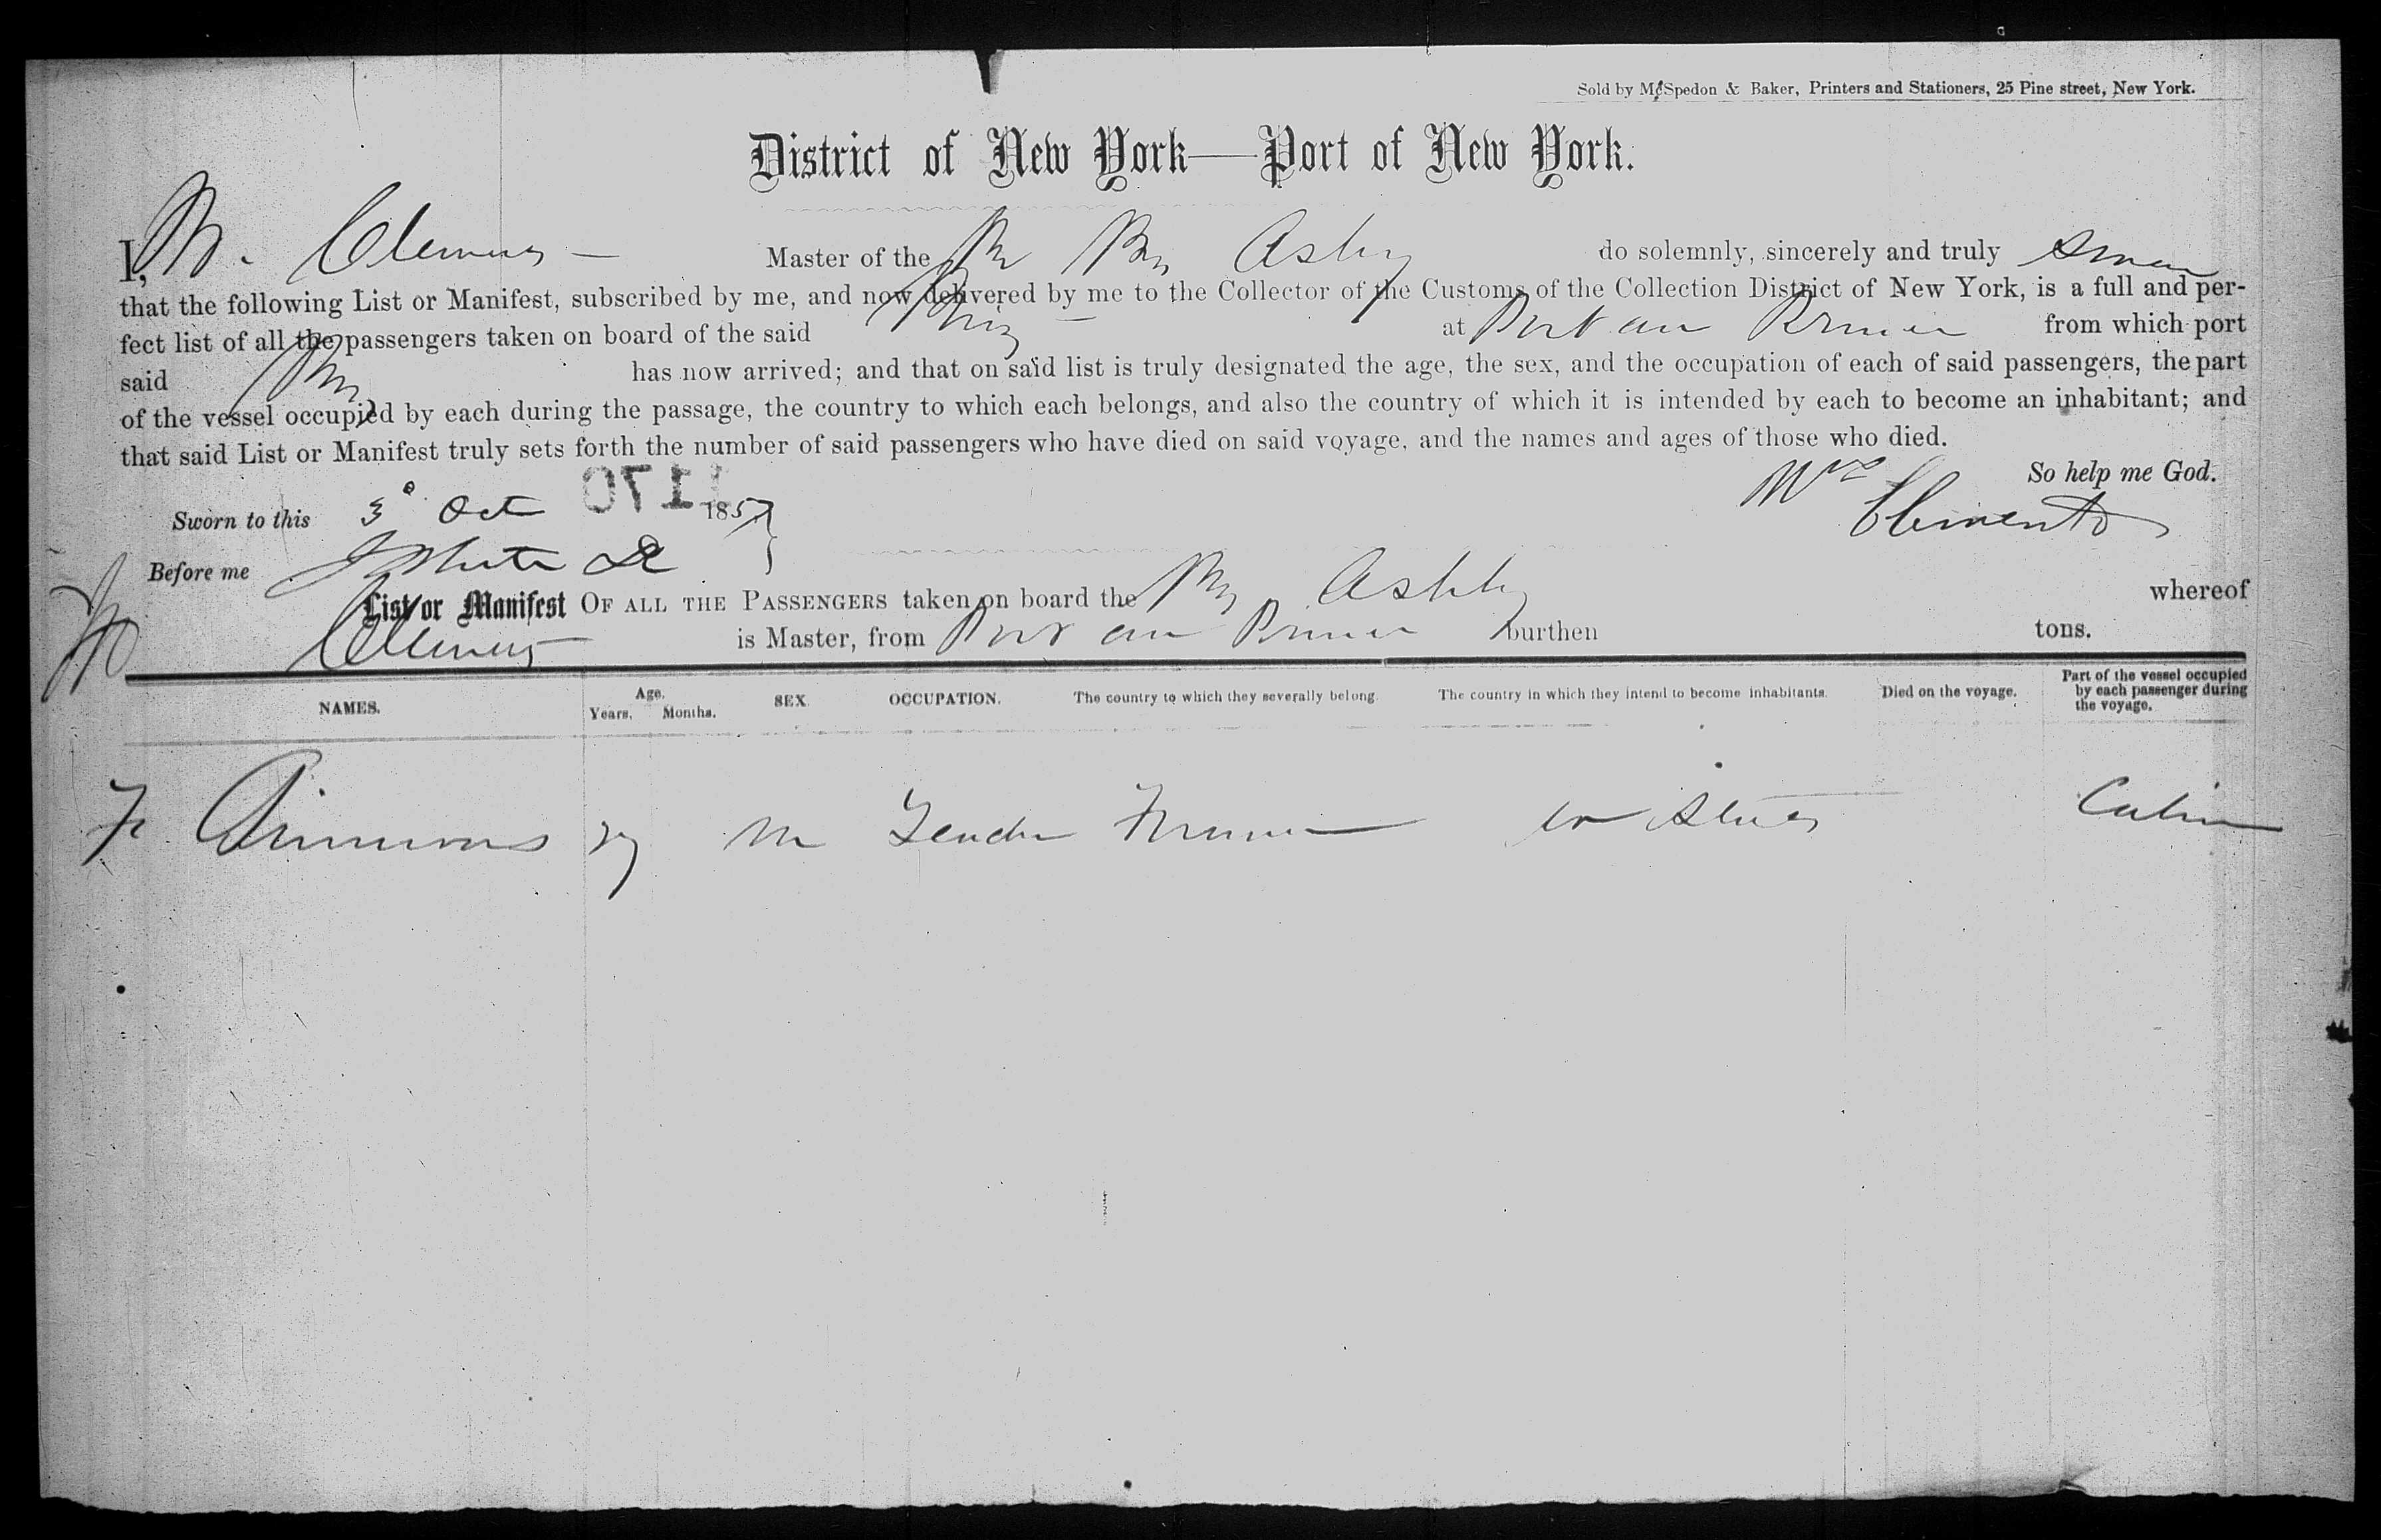 Sold by McSpedon & Baker, Printers and Stationers, 25 Pine street, New York.
District of New York—Port of New York.
I, W. Clements Master of the Br Brig Ashby do solemnly, sincerely and truly swear
that the following List or Manifest, subscribed by me, and now delivered by me to the Collector of the Customs of the Collection District of New York, is a full and per-
fect list of all the passengers taken on board of the said Brig at Port au Prince from which port
said Brig has now arrived; and that on said list is truly designated the age, the sex, and the occupation of each of said passengers, the part
of the vessel occupied by each during the passage, the country to which each belongs, and also the country of which it is intended by each to become an inhabitant; and
that said List or Manifest truly sets forth the number of said passengers who have died on said voyage, and the names and ages of those who died.
So help me God.
Sworn to this 3d Oct 1857
Wm Clements
Before me
List or Manifest OF ALL THE PASSENGERS taken on board the Brig Ashby whereof
Clements is Master, from Port au Prince burthen tons.
NAMES. Age. Years. Months. SEX. OCCUPATION. The country to which they severally belong. The country in which they intend to become inhabitants. Died on the voyage. Part of the vessel occupied by each passenger during the voyage.
F M France U States Cabin